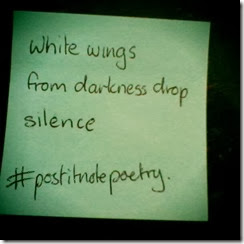 White wings
from darkness drop
silence
#postitnotepoetry.